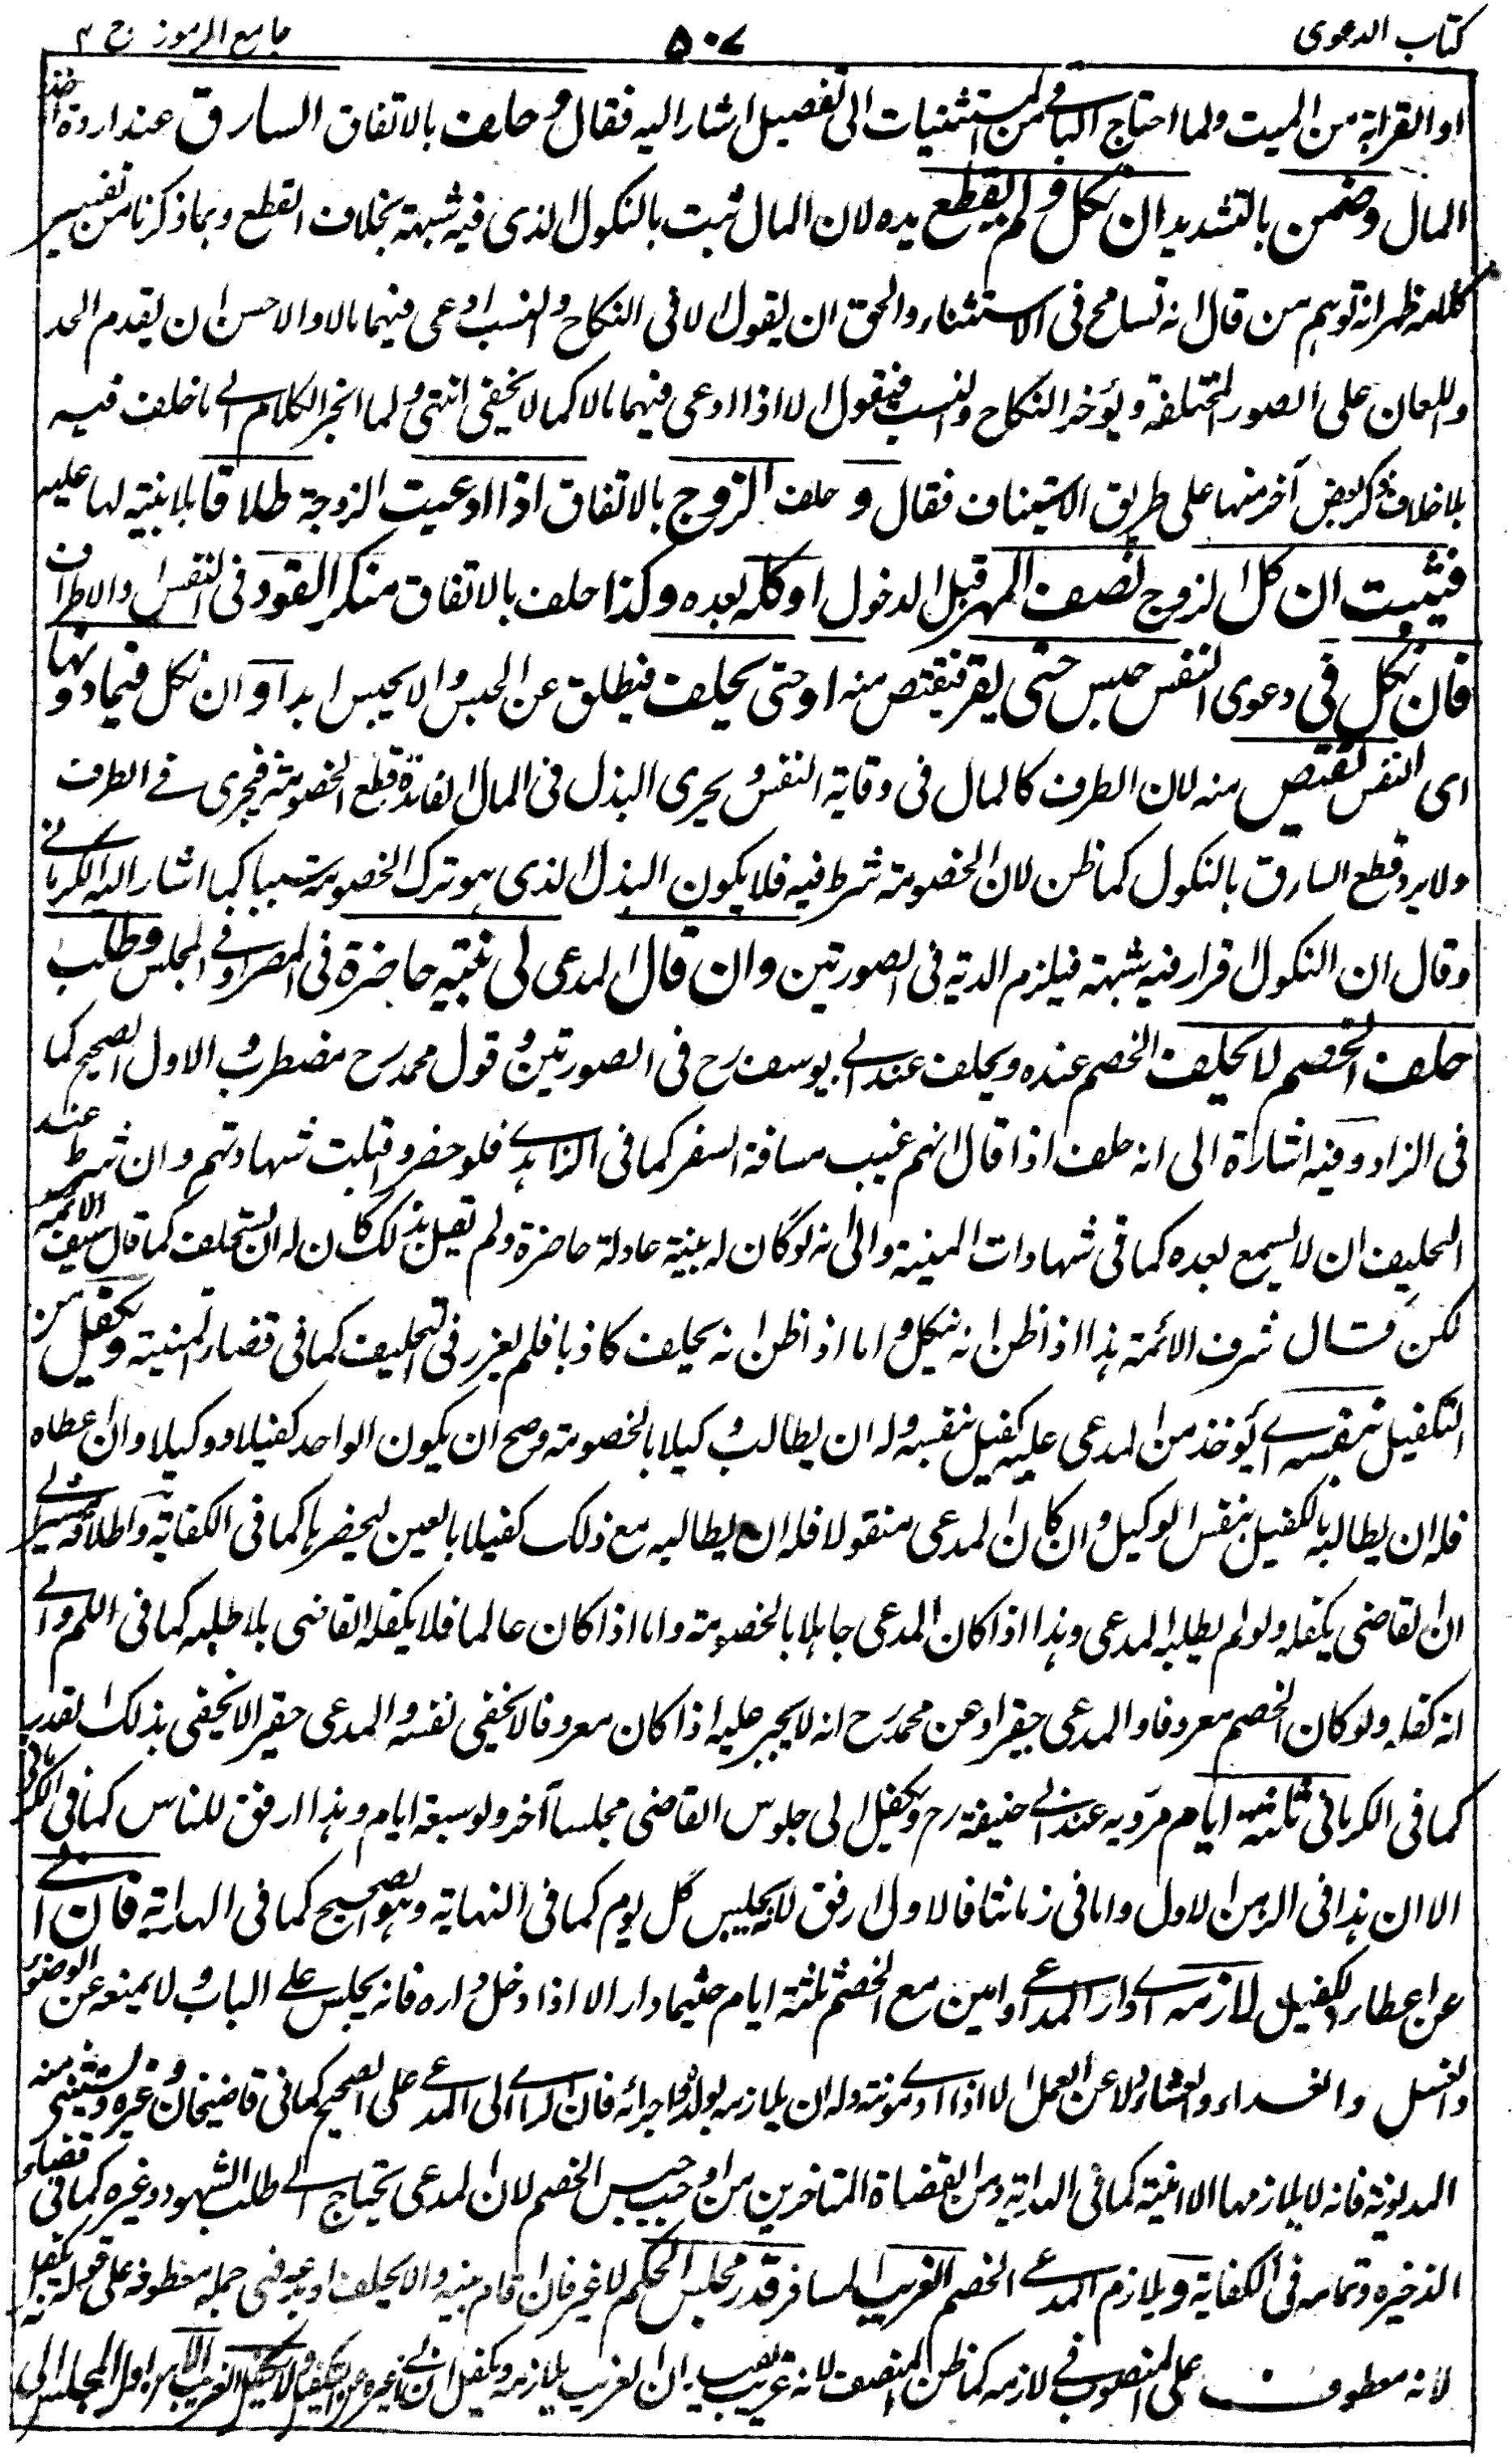 كتاب الدعوى
٥٠٧
جامع الرموز ج ٢
او القرابة من الميت ولما احتاج الباقي من المستثنيات الى تفصيل اشار اليه فقال و حلف بالاتفاق السارق عند ارادة اخذ
المال وضمن بالتشديد ان نكل و لم يقطع يده لان المال ثبت بالنكول الذى فيه شبهة بخلاف القطع وبما ذكرنا من تفسير
كلامه ظهر انه توهم من قال انه تسامح فى الاستثناء والحق ان يقول الا فى النكاح والنسب ادعى فيهما مالا والاحسن ان يقدم الحد
واللعان على الصور المختلفة ويؤخر النكاح والنسب فيقول الا اذا ادعى فيهما مالا كما لا يخفى انتهى ولما انجر الكلام الى ما خلف فيه
بلا خلاف ذكر بعض آخر منها على طريق الاستيناف فقال و حلف الزوج بالاتفاق اذا ادعيت الزوجة طلاقا بلا بينة لها عليه
فيثبت ان نكل الزوج نصف المهر قبل الدخول او كله بعده وكذا حلف بالاتفاق منكر القود فى النفس والاطراف
فان نكل فى دعوى النفس حبس حتى يقر فيقتص منه او حتى يحلف فيطلق عن الحبس والا يحبس ابدا و ان نكل فيما دونها
اى النفس يقتص منه لان الطرف كالمال فى وقاية النفس و يجرى البذل فى المال لفائدة قطع الخصومة فيجرى فى الطرف
ولا يرد قطع السارق بالنكول كما ظن لان الخصومة شرط فيه فلا يكون البذل الذى هو ترك الخصومة سببا كما اشار اليه الكرمانى
وقالا ان النكول اقرار فيه شبهة فيلزم الدية فى الصورتين وان قال المدعى لى بينة حاضرة فى المصر او فى المجلس و طلب
حلف الخصم لا يحلف الخصم عنده ويحلف عند ابى يوسف رح فى الصورتين و قول محمد رح مضطرب والاول الصحيح كما
فى الزاد وفيه اشارة الى انه حلف اذا قال انهم غيب مسافة السفر كما فى الزاهدى فلو حضروا قبلت شهادتهم وان شرط عند
التحليف ان لا يسمع بعده كما فى شهادات المنية والى انه لو كان له بينة عادلة حاضرة ولم تقبل بذلك كان له ان يستحلف كما قال سيف الائمة
لكن قال شرف الائمة هذا اذا ظن انه ينكل و اما اذا ظن انه يحلف كاذبا فلم يعزر فى التحليف كما فى قضاء المنية و يكفل من
التكفيل بنفسه اى يؤخذ من المدعى عليه كفيل بنفسه وله ان يطالب وكيلا بالخصومة وصح ان يكون الواحد كفيلا ووكيلا وان اعطاه
فله ان يطالبه بالكفيل بنفس الوكيل وان كان المدعى منقولا فله ان يطالبه مع ذلك كفيلا بالعين ليحضرها كما فى الكفاية واطلاقه مشير الى
ان القاضى يكفله ولو لم يطلبه المدعى وهذا اذا كان المدعى جاهلا بالخصومة واما اذا كان عالما فلا يكفله القاضى بلا طلبه كما فى اللم والى
انه كفله ولو كان الخصم معروفا والمدعى حقيرا وعن محمد رح انه لا يجبر عليه اذا كان معروفا لا يخفى نفسه والمدعى حقيرا لا يخفى بذلك القدر
كما فى الكرمانى ثلثة ايام مروية عند ابى حنيفة رح و يكفل الى جلوس القاضى مجلسا آخر ولو سبعة ايام وهذا ارفق للناس كما فى الكرمانى
الا ان هذا فى الزمن الاول واما فى زماننا فالاول ارفق لانه يجلس كل يوم كما فى النهاية وهو الصحيح كما فى الهداية فان ابى
عن اعطاء الكفيل لازمه اى دار المدعى او امين مع الخصم ثلثة ايام حيثما دار الا اذا دخل داره فانه يجلس على الباب و لا يمنعه عن الوضوء
والغسل والغداء والعشاء ولا عن العمل الا اذا ادى مؤنته وله ان يلازمه بولده واجرائه فان الراى الى المدعى على الصحيح كما فى قاضيخان وغيره ويستثنى منه
المديونة فانه لا يلازمها الا امينة كما فى الهداية ومن القضاة المتاخرين من اوجب حبس الخصم لان المدعى يحتاج الى طلب الشهود وغيره كما فى قضاء
الذخيرة وتمامه فى الكفاية و يلازم المدعى الخصم الغريب المسافر قدر مجلس الحكم لا غير فان اقام بينة والا يحلف او يدعه فهى جملة معطوفة على قوله يكفل
لانه معطوف على المنصوب فى لازمه كما ظن المنصف لانه غريب ان الغريب يلازمه ويكفل ان الى آخر المجلس الى